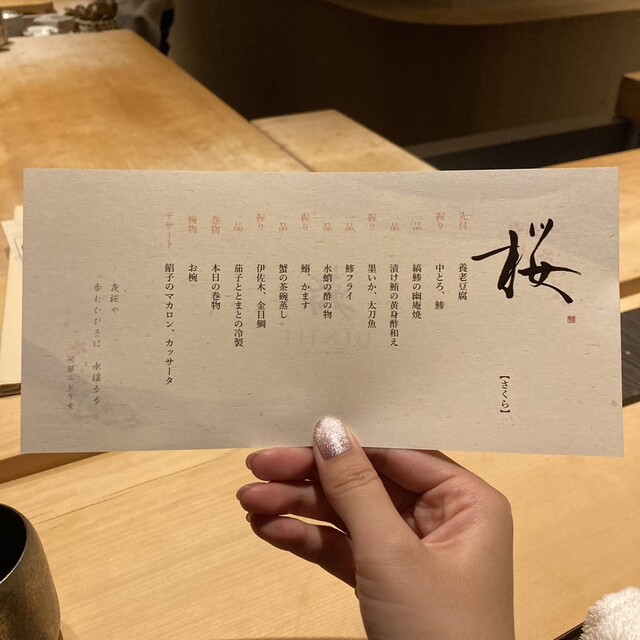 桜
【さくら】
先付 養老豆腐
握り 中とろ、鯵
一品 縞鯵の幽庵焼
一品 漬け鮪の黄身酢和え
握り 墨いか、太刀魚
一品 鯵フライ
一品 水蛸の酢の物
握り 鰯、かます
一品 蟹の茶碗蒸し
握り 伊佐木、金目鯛
一品 茄子ととまとの冷製
巻物 本日の巻物
椀物 お椀
デザート 餡子のマカロン、カッサータ
夜桜や